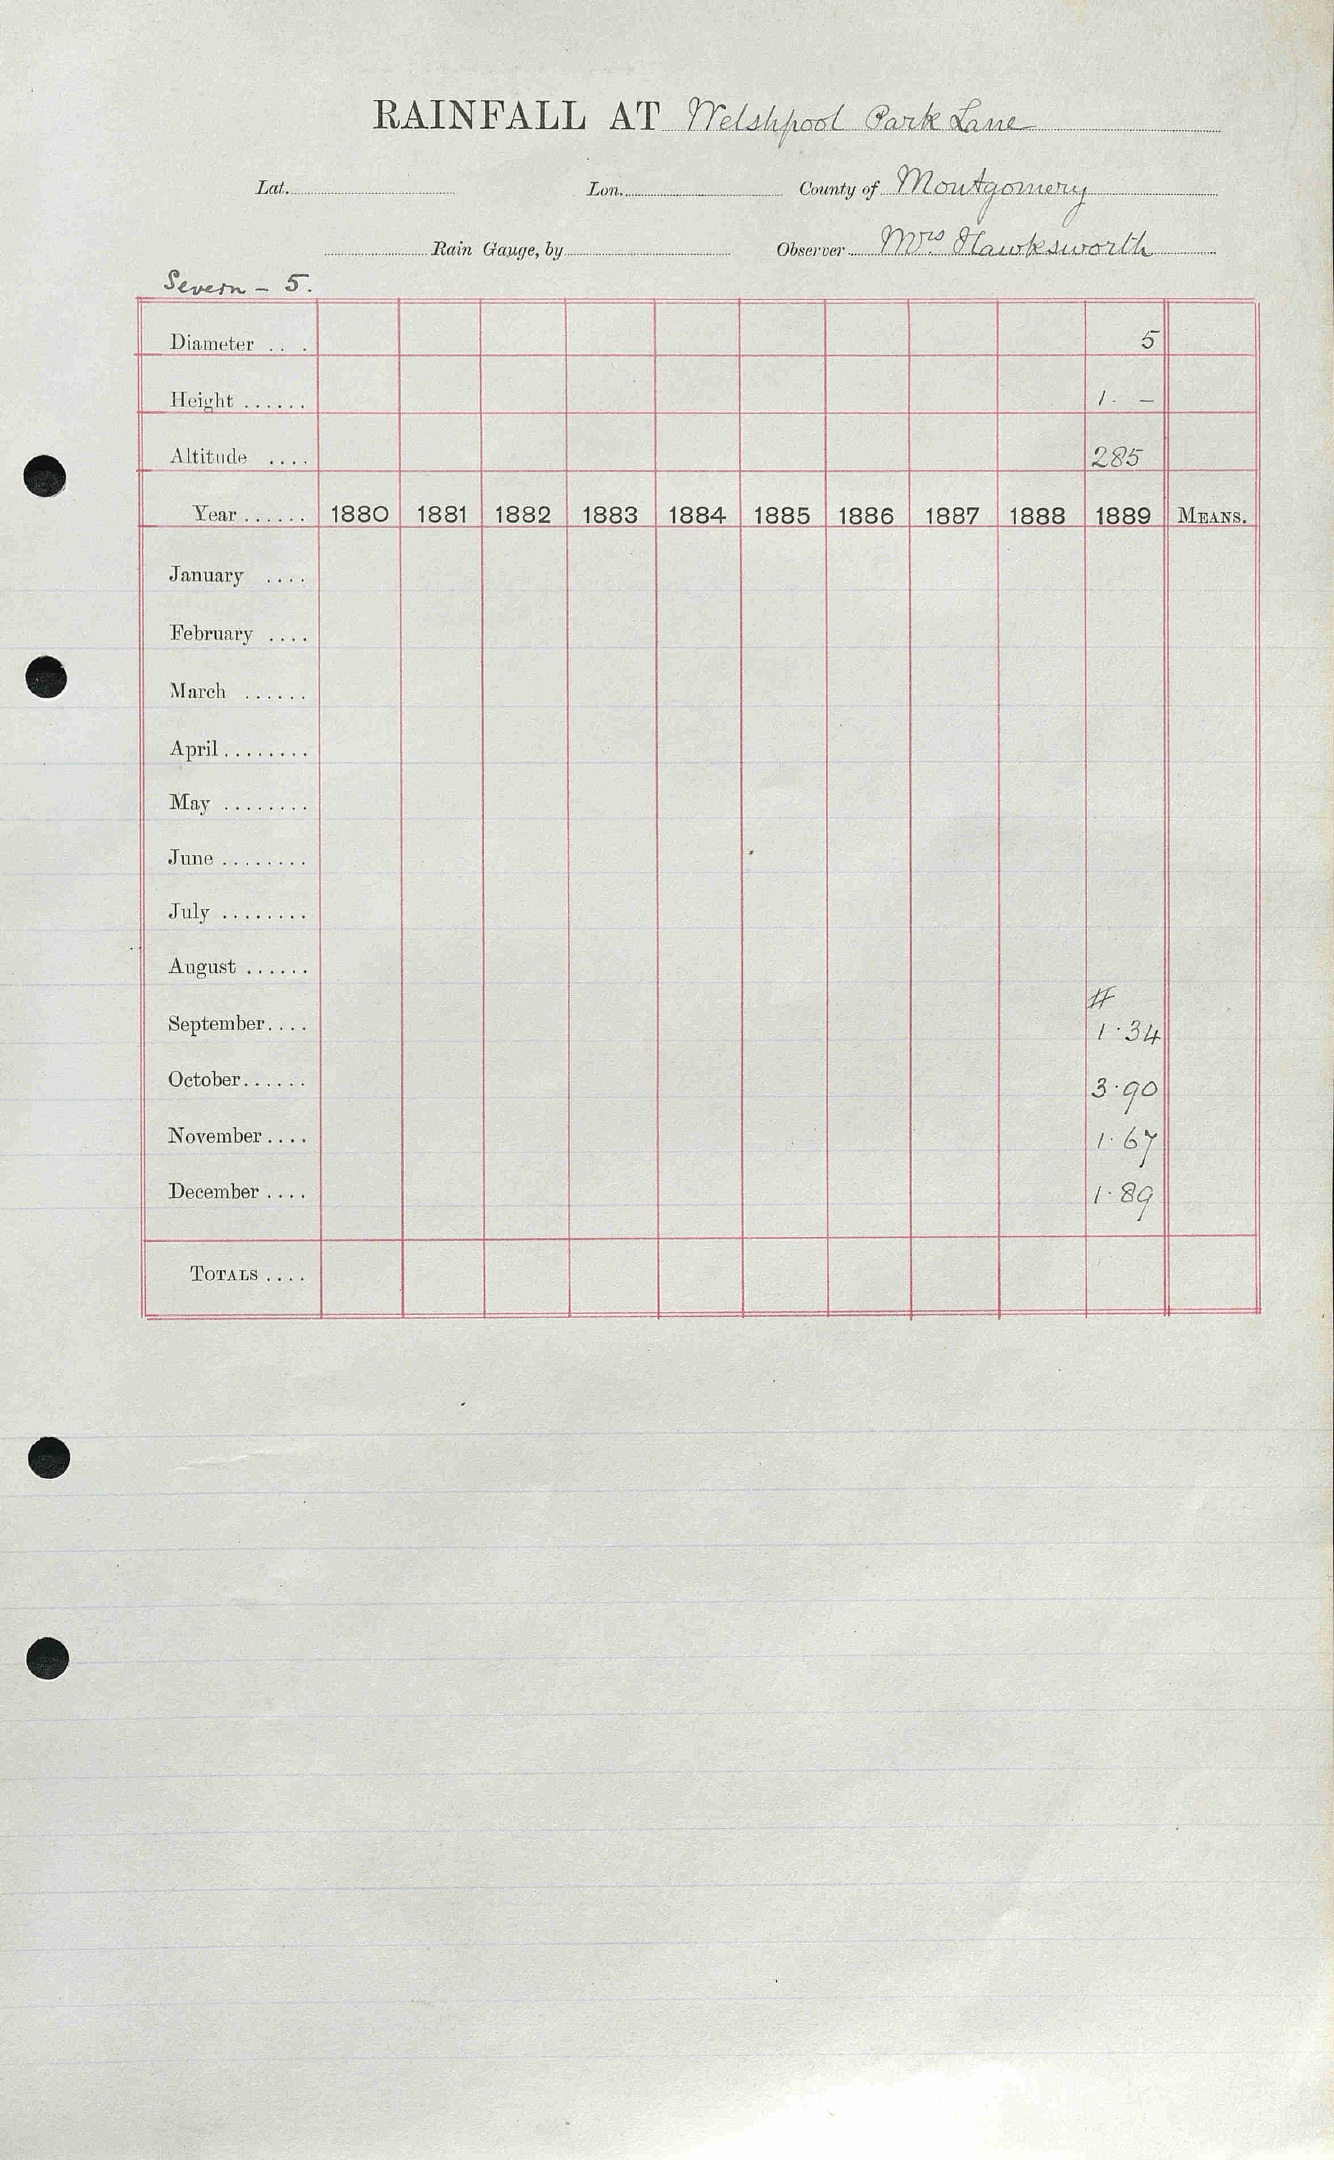 RAINFALL AT Welshpool Park Lane
Lat. Lon. County of Montgomery
Rain Gauge, by Observer Mrs Hawksworth
Severn - 5.
Diameter .. . 5
Height ...... 1. -
Altitude .... 285
Year ...... 1880 1881 1882 1883 1884 1885 1886 1887 1888 1889 MEANS.
January ....
February ....
March ......
April ........
May ........
June ........
July ........
August ......
#
September.... 1.34
October...... 3.90
November.... 1.67
December.... 1.89
TOTALS ....